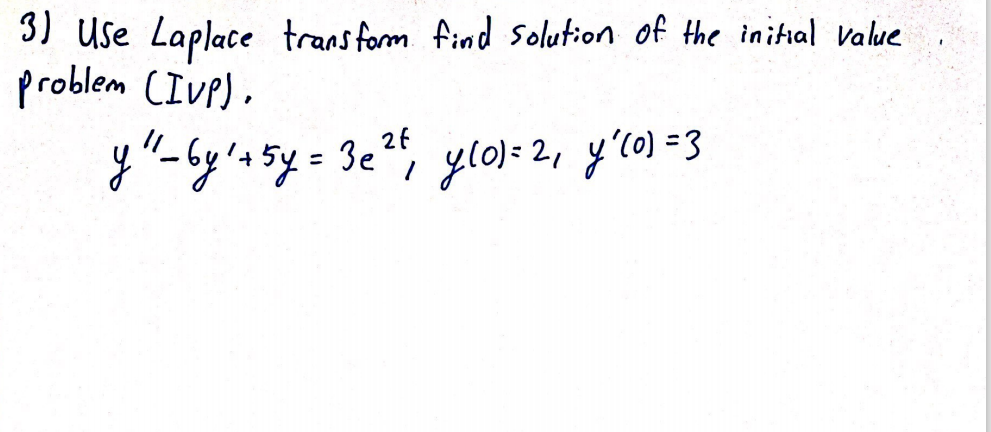 3) Use Laplace transform find solution of the initial value .
problem (IVP).
y''-6y'+5y = 3e^{2t}, y(0)=2, y'(0)=3